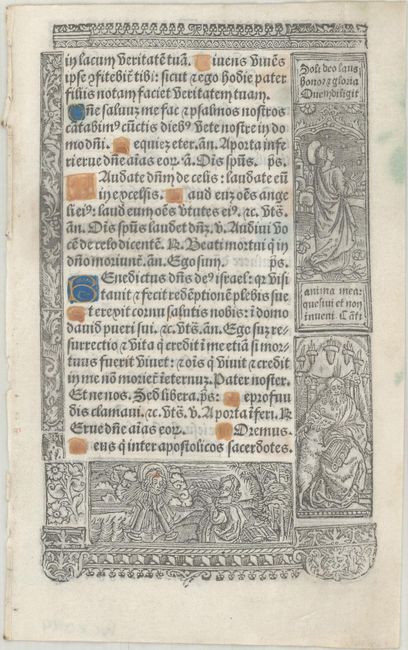 in lacum veritatẽ tuã. Viuens viuẽs
ipse ꝯfitebit̃ tibi: sicut ⁊ ego hodie pater
filiis notam faciet veritatem tuam.
Dñe saluuz me fac ⁊ psalmos nostros
cãtabim⁹ cũctis dieb⁹ vite nostre in do
mo dñi. Requiẽ eter. añ. A porta infe
ri erue dñe aĩas eoꝝ. ã. Oĩs spũs. ps.
Laudate dñm de celis: laudate eũ
in excelsis. Laud euz oẽs ange
li ei⁹: laud eum oẽs v̓tutes ei⁹. ⁊c. vt s̃.
añ. Oĩs spũs laudet dñz. v̓. Audiui vo
cẽ de celo dicentẽ. ℟. Beati mortui q̓ in
dño moriunt̃. añ. Ego sum. ps.
Benedictus dñs de⁹ israel: qꝛ visi
tauit ⁊ fecit redẽptionẽ plebis sue
Et erexit cornu salutis nobis: ĩ domo
dauid pueri sui. ⁊c. vt s̃. añ. Ego suz re-
surrectio ⁊ vita q̓ credit ĩ me etiã si mor-
tuus fuerit viuet: ⁊ oĩs q̓ viuit ⁊ credit
in me nõ moriet̃ ĩ eternuz. Pater noster.
Et ne nos. Sed libera. ps: De profun
dis clamaui. ⁊c. vt s̃. v̓. A porta ĩferi. ℟
Erue dñe aĩas eoꝝ. Oremus.
Deus q̓ inter apostolicos sacerdotes.
Soli deo laus
honoꝛ ⁊ gloria
Quem diligit
anima mea:
quesiui et non
inueni. Cãti